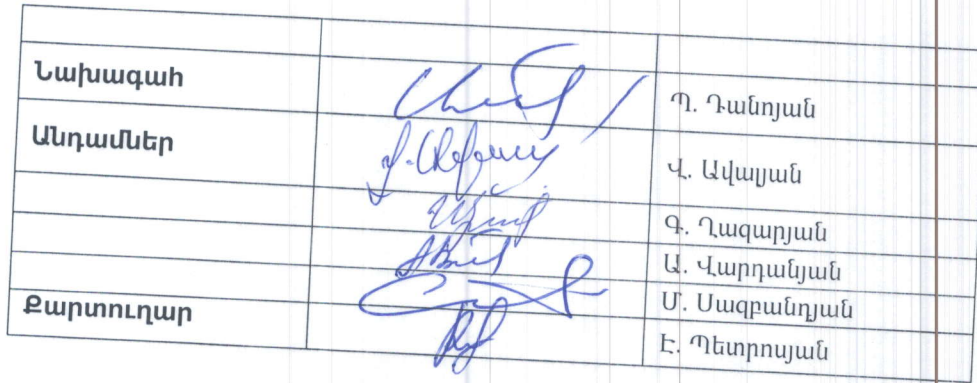 Նախագահ Պ. Դանոյան
Անդամներ Վ. Ավալյան
Գ. Ղազարյան
Ա. Վարդանյան
Մ. Սազբանդյան
Քարտուղար Է. Պետրոսյան